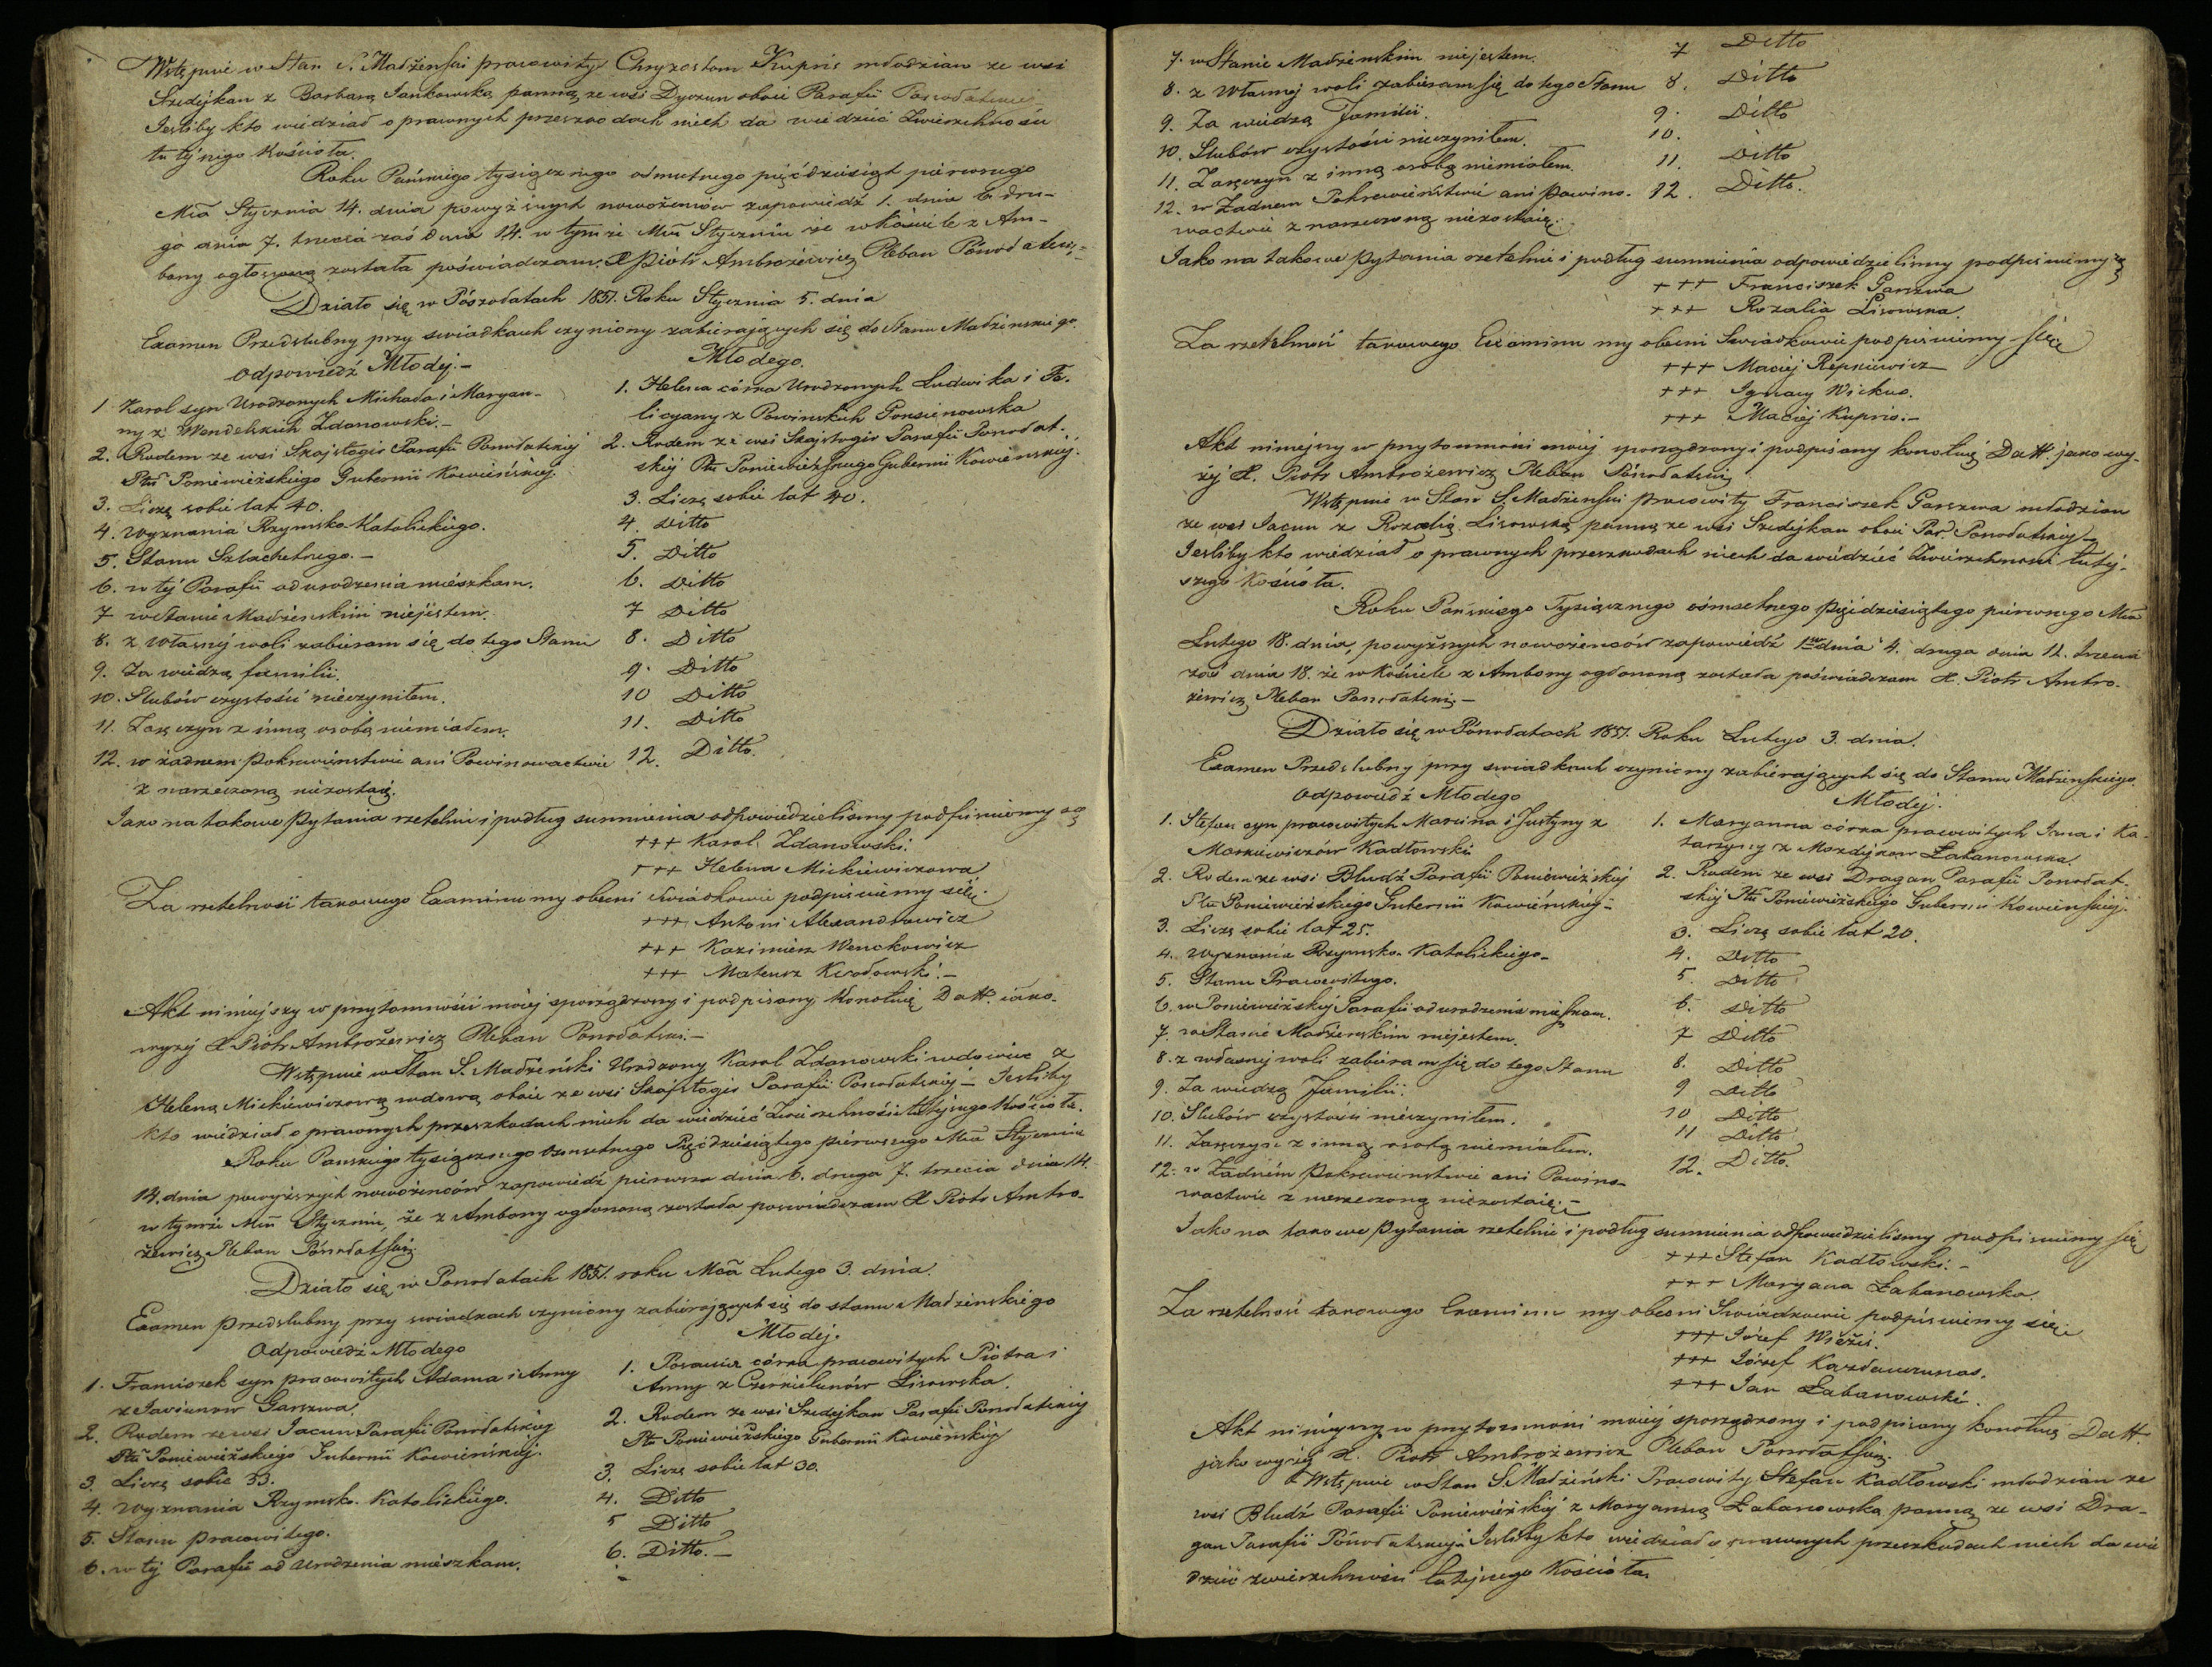 Wstępuie w Stan S. Małżeński pracowity Chryzostom Kupris młodzian ze wsi
Szedejkan z Barbarą Jankowską panną ze wsi Dyrzun oboie Parafii Ponodatskiej
Jesliby kto wiedział o prawnych przeszkodach niech da wiedzieć Zwierzchności
tutéjszego Kościoła.
Roku Pańskiego tysiącznego ośmsetnego pięćdziesiąt pierwszego
Mca Stycznia 14. dnia powyższych nowożeńców zapowiedź 1. dnia 6. dru-
ga dnia 7. trzecia zaś dnia 14. w tymże Mcu Styczniu że w Kościele z Am-
bony ogłoszoną została poświadczam. X Piotr Ambrożewicz Pleban
Działo się w 1851. Roku Stycznia 5. dnia
Examen Przedslubny przy swiadkach czyniony zabierających się do Stanu Małżenskiego.
Odpowiedź Młodej.-
Młodego.
1 Karol syn Urodzonych Michała i Maryan-
ny z Zdanowski.-
2. Rodem ze wsi Skajstogir Parafii Ponodatskiej
Ptu Poniewieżskiego Gubernii Kowieńskiej.
3. Liczę sobie lat 40.
4. Wyznania Rzymsko-Katolickiego.
5. Stanu Szlachetnego.-
6. w tej Parafii od urodzenia mieszkam.
7 w Stanie Małżenskim niejestem.
8. z Własnéj woli zabieram się do tego Stanu
9. Za wiedzą familii.
10. Slubów czystości nieczyniłem.
11. Zaręczyn z inną osobą niemiałem.
12. w żadnem Pokrewieństwie ani Powinowactwie
z narzeczoną niezostaię.
1. Helena córka Urodzonych Ludwika i Fe-
licyany z Powinskich
2. Rodem ze wsi Skajstogir Parafii Ponodat-
skiéj Ptu Poniewieżskiego Gubernii Kowienskiéj.
3. Liczę sobie lat 40.
4. Ditto
5. Ditto
6. Ditto
7 Ditto
8. Ditto
9. Ditto
10 Ditto
11. Ditto
12. Ditto.
Jako na takowe Pytania rzetelnie i podług sumnienia odpowiedzielismy podpisuiemy się
+++ Karol Zdanowski.
+++ Helena Mickiewiczowa
Za rzetelność takowego Examinu my obecni świadkowie podpisuiemy się.
+++ Antoni Alexandrowicz
+++ Kazimierz Wenckowicz
+++ Mateusz
Akt niniejszy w przytomności moiej sporządzony i podpisany Konotuię Datt. iako-
wyżej X Piotr Ambrożewicz Pleban
Wstępuie w Stan S. Małżeński Urodzony Karol Zdanowski wdowiec z
Heleną Mickiewiczową wdową oboie ze wsi Skajstogir Parafii Ponodatskiej- Jesliby
kto wiedział o prawnych przeszkodach niech da wiedzieć Zwierzchności tutéjszego Kościoła.
Roku Pańskiego tysiącznego ośmsetnego Pięćdziesiątego pierwszego Mca Stycznia
14. dnia powyższych nowożeńców zapowiedź pierwsza dnia 6. druga 7. trzecia dnia 14.
w tymże Mcu Styczniu, że z Ambony ogłoszoną została poswiadczam X Piotr Ambro-
żewicz Pleban
Działo się w 1851. roku Mca Lutego 3. dnia.
Examen Przedslubny przy swiadkach czyniony zabierających się do stanu Małżenskiego
Odpowiedź Młodego
Młodej.
1. Franciszek syn pracowitych Adama i Anny
z Garszwa.
2. Rodem ze wsi Jacun Parafii Ponodatskiej
Ptu Poniewieżskiego Gubernii Kowieńskiej.
3. Liczę sobie 33.
4. Wyznania Rzymsko-Katolickiego.
5. Stanu pracowitego.
6. w tej Parafii od urodzenia mieszkam.
1. córka pracowitych Piotra i
Anny z Lisowska.
2. Rodem ze wsi Szedejkan Parafii Ponodatskiej
Ptu Poniewieżskiego Gubernii Kowieńskiej
3. Liczę sobie lat 30.
4. Ditto
5 Ditto
6. Ditto.-
7. w Stanie Małżenskim niejestem.
8. z Własnej woli zabieram się do tego Stanu
9. Za wiedzą Familii.
10. Slubów czystości nieczyniłem.
11. Zaręczyn z inną osobą niemiałem.
12. w Żadnem Pokrewieństwie ani Powino-
wactwie z narzeczoną niezostaię.
7 Ditto
8. Ditto
9. Ditto
10.
11. Ditto
12. Ditto.
Jako na takowe Pytania rzetelnie i podług sumnienia odpowiedzielismy podpisuiemy się
+++ Franciszek Garszwa
+++ Rozalia Lisowska.
Za rzetelność takowego Examinu my obecni Swiadkowie podpisuiemy się
+++ Maciej Repniewicz
+++ Ignacy Wickus.
+++ Maciej Kupris.-
Akt niniejszy w przytomności moiéj sporządzony i podpisany konotuię Datt. jako wy-
żéj X. Piotr Ambrożewicz Pleban
Wstępuie w Stan S. Małżenski Pracowity Franciszek Garszwa młodzian
ze wsi Jacun z Rozalią Lisowską panną ze wsi Szedejkan oboie Par: Ponodatskiej-
Jesliby kto wiedział o prawnych przeszkodach niech da wiedzieć Zwierzchności tutéj-
szego Kościoła.
Roku Pańskiego Tysiącznego ośmsetnego Pięćdziesiątego pierwszego Mca
Lutego 18. dnia, powyższych nowożeńców zapowiedź 1sza dnia 4. druga dnia 12. trzecia
zaś dnia 18. że w Kościele z Ambony ogłoszoną została poświadczam X. Piotr Ambro-
żewicz Pleban
Działo się w 1851. Roku Lutego 3. dnia.
Examen Przedslubny przy swiadkach czyniony zabierających się do Stanu Małżenskiego.
Odpowiedź Młodego
Młodéj.
1. Stefan syn pracowitych Marcina i Justyny z
Markiewiczów Kadłowski
2. Rodem ze wsi Bludź Parafii Poniewieżskiej
Ptu Poniewieżskiego Gubernii Kowieńskiéj-
3. Liczę sobie lat 25.
4. Wyznania Rzymsko-Katolickiego-
5. Stanu Pracowitego.
6. w Poniewieżskiéj Parafii od urodzenia mieszkam.
7. w Stanie Małżenskim niejestem.
8. z własnej woli zabieram się do tego Stanu
9. Za wiedzą Familii.
10. Slubów czystości nieczyniłem.
11. Zaręczyn z inną osobą niemiałem.
12. w Żadném Pokrewieństwie ani Powino-
wactwie z narzeczoną niezostaię.-
1. Maryanna córka pracowitych Jana i Ka-
tarzyny z Łabanowska.
2. Rodem ze wsi Dragan Parafii Ponodat-
skiéj Ptu Poniewieżskiego Gubernii Kowieńskiéj.
3. Liczę sobie lat 20.
4. Ditto
5. Ditto
6. Ditto
7 Ditto
8. Ditto
9 Ditto
10 Ditto
11 Ditto
12. Ditto.
Jako na takowe Pytania rzetelnie i podług sumnienia odpowiedzielismy podpisuiemy się
+++ Stefan Kadłowski.-
+++ Maryana Łabanowska.
Za rzetelność takowego Examinu my obecni Swiadkowie podpisuiemy się.
+++ Józef
+++ Józef
+++ Jan Łabanowski.
Akt niniejszy w przytomności moiéj sporządzony i podpisany konotuię Datt.
jako wyżéj X. Piotr Ambrożewicz Pleban
Wstępuie w Stan S. Małżeński Pracowity Stefan Kadłowski młodzian ze
wsi Bludź Parafii Poniewieżskiéj z Maryanną Łabanowską panną ze wsi Dra-
gan Parafii Ponodatskiej- Jesliby kto wiedział o prawnych przeszkodach niech da wie
dzieć zwierzchności tutejszego Kościoła.